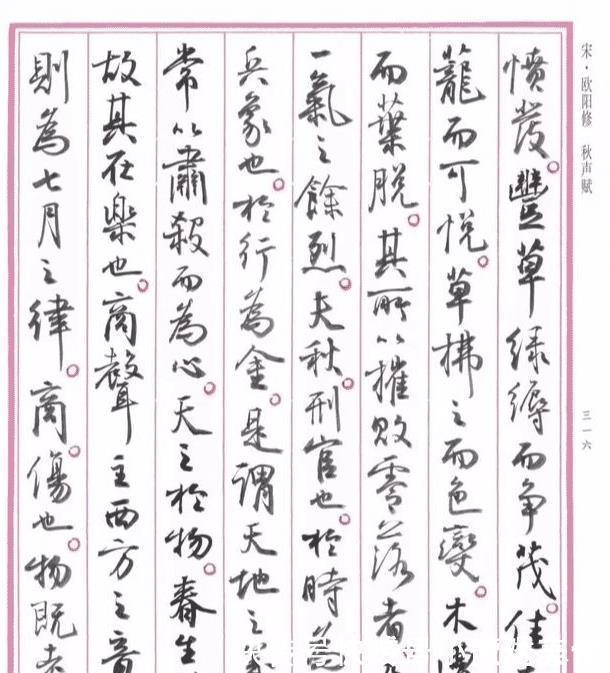 宋·欧阳修 秋声赋
三一六
愤發。豐草绿缛而争茂。佳
蘢而可悦。草拂之而色變。木
而葉脱。其所以摧敗零落者
一氣之餘烈。夫秋。刑官也。於時為
兵象也。於行為金。是謂天地之
常以肅殺而為心。天之於物。春生
故其在樂也。商聲主西方之音
則為七月之律。商。傷也。物既老